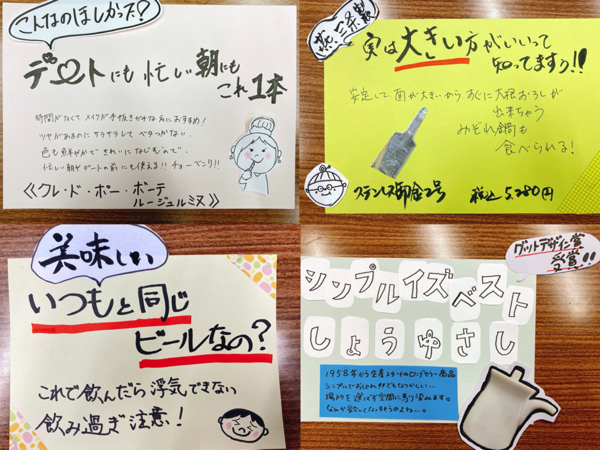 こんなのほしかった？
デートにも忙しい朝にも
これ1本
時間がなくてメイクが手抜きがちな方におすすめ！
ツヤがあるのにサラサラしてベタつかない、
色も鮮やかできれいになじむので、
忙しい朝やデートの前にも使える!!チョーベンリ!!
《クレ・ド・ポー・ボーテ
ルージュルミヌ》
燕三条製
実は大きい方がいいって
知ってますゥ!!
安定して面が大きいからすぐに大根おろしが
出来ちゃう
みぞれ鍋も
食べられる！
ステンレス卸金2号 税込5,280円
美味しい
いつもと同じ
ビールなの？
これで飲んだら浮気できない
飲み過ぎ注意！
グットデザイン賞
受賞!!
シンプルイズベスト
しょうゆさし
1958年から生産スタートのロングセラー商品
シンプルでおしゃれ
場所を選ばず空間に馴染みます。